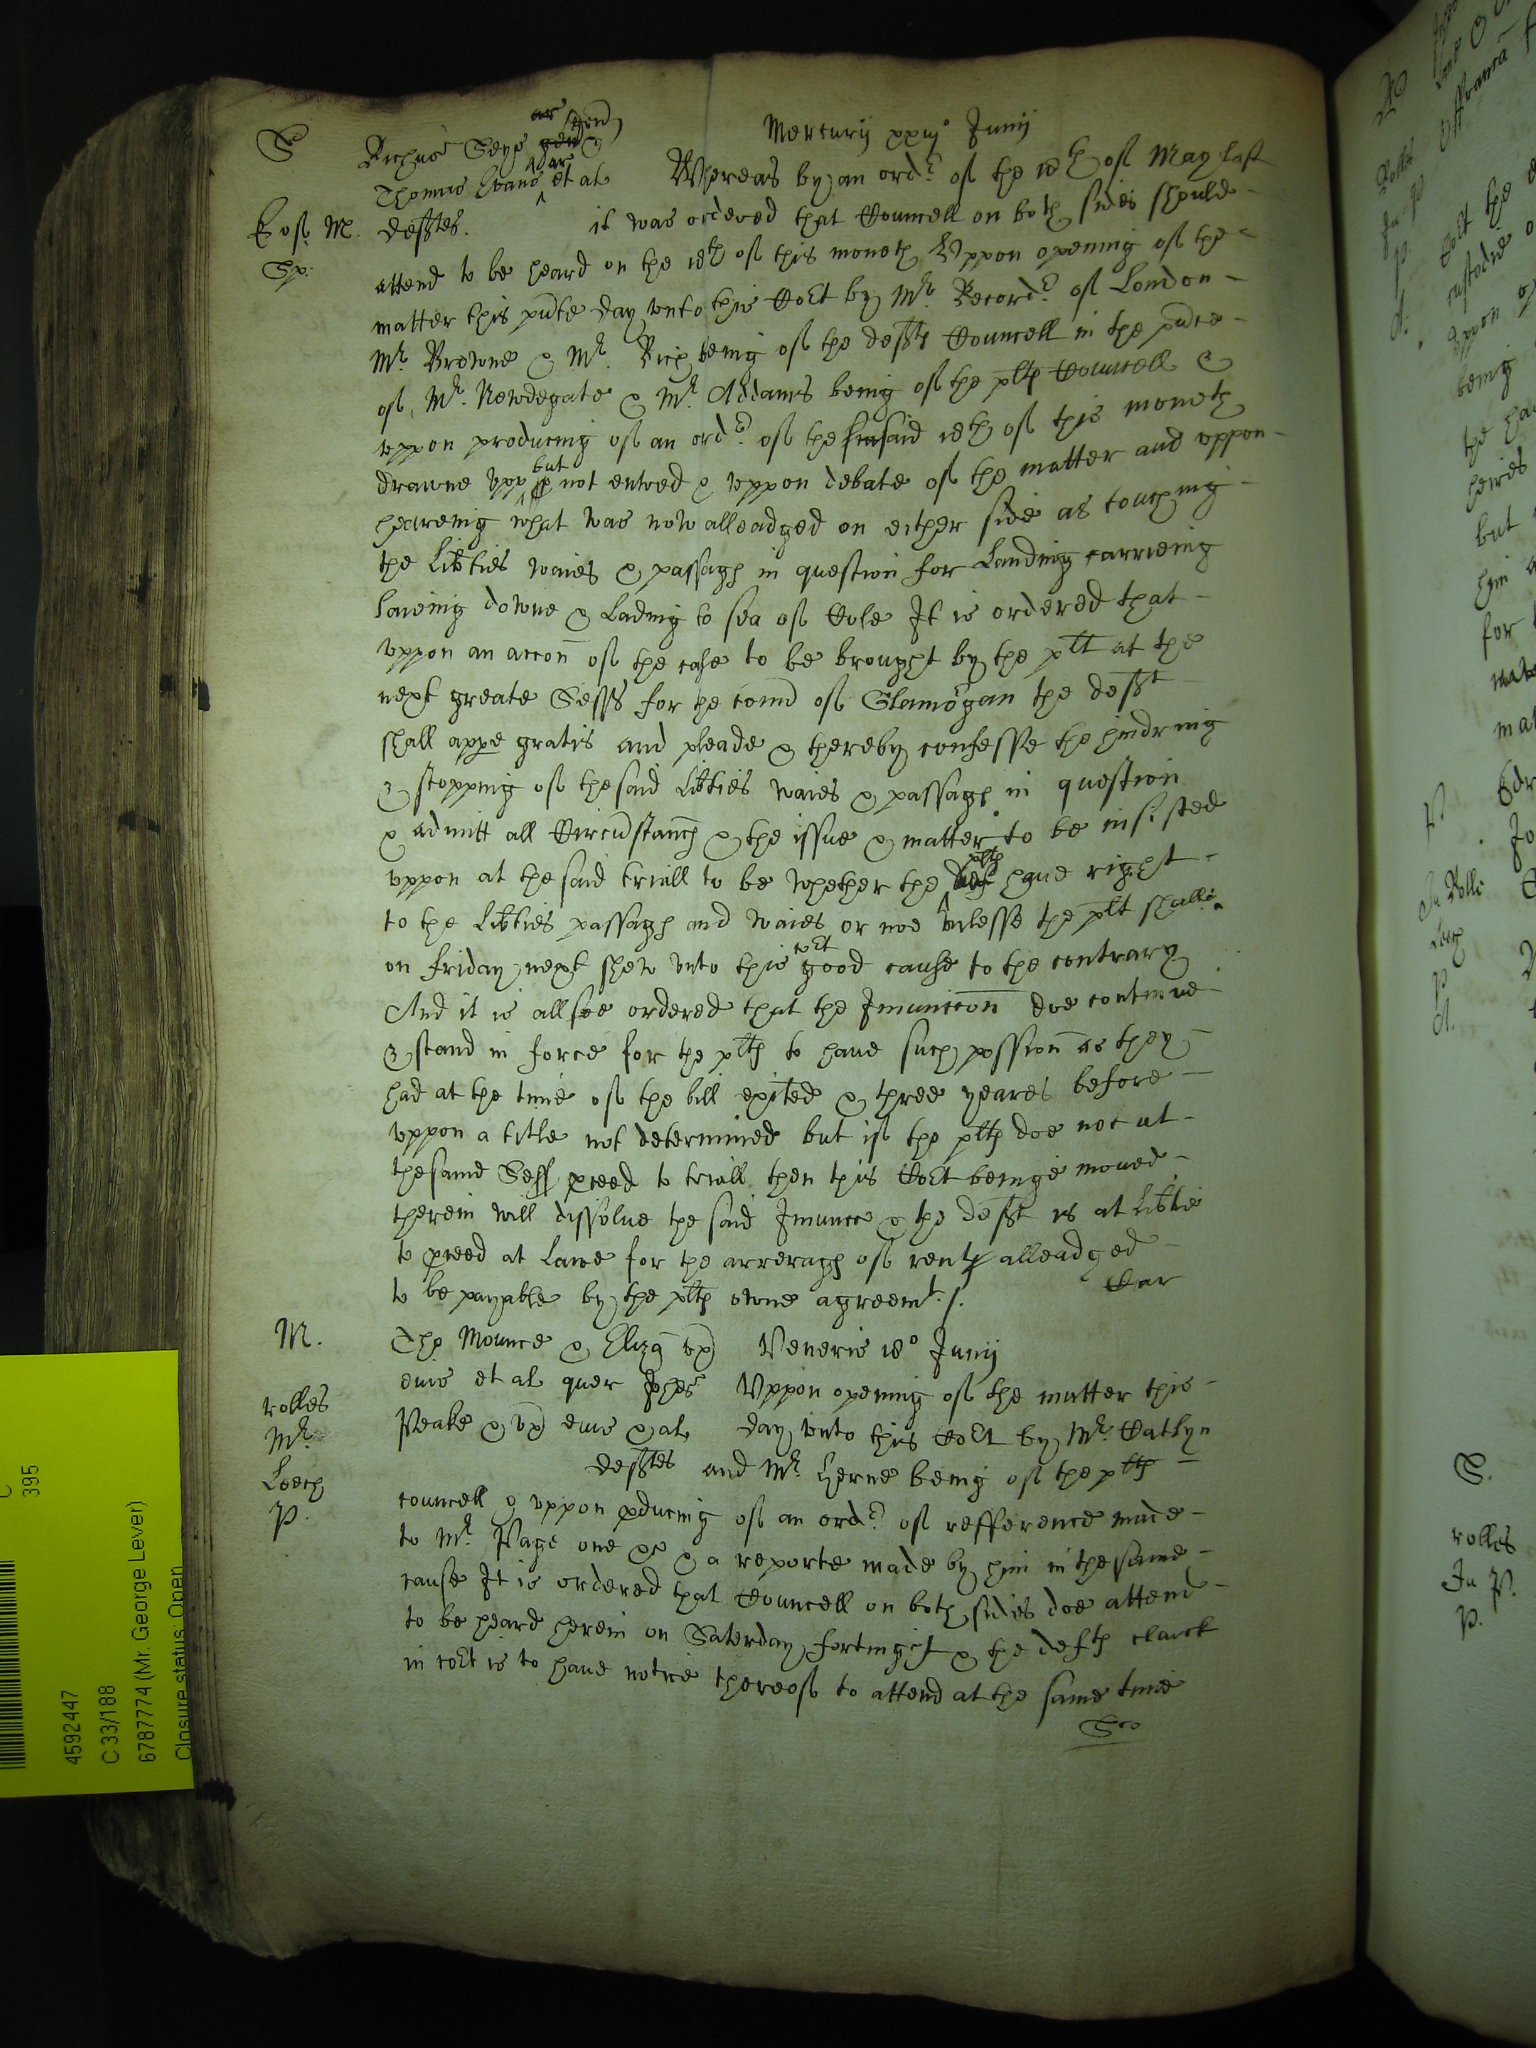 S
Mercurij xxiijo Junij
Richus Seys ar
Thomas Evans ar et al
Whereas by an ordr of the 18th of May last
E of. M.
Sp:
deftes. it was ordered that Councell on both sides should
attend to be heard on the 18th of this moneth Uppon opening of the
matter this pnte day unto this Cort by Mr. Recordr of London
Mr Browne & Mr. Rich being of the defts Councell in the pnce
of Mr. Newdegate & Mr Addams being of the plts Councell &
uppon producing of an ordr of the said 18th of this moneth
drawne upp but not entred & uppon debate of the matter and uppon
heareing what was now alleadged on either side as touching
the Libties waies & passags in question for Landing carrieing
laieing downe & Lading to sea of Cole It is ordered that
uppon an accon of the case to be brought by the plt at the
next greate Sesss for the Com of Glamorgan the deft
shall appe gratis and pleade & thereby confesse the hindring
& stopping of the said Libties waies & passags in question
& admitt all Circumstancs & the issue & matter to be insisted
uppon at the said triall to be whether the plts have right
to the Libties passags and waies or noe unlesse the plt shall
on friday next shew unto this Cort good cause to the contrary
And it is allsoe ordered that the Iniunccon doe continue
& stand in force for the plts to have such possion as they
had at the time of the bill exited & three yeares before
uppon a title not determined but if the plts doe not at
the same Sess pceed to triall then this Cort beinge moved
therein will dissolve the said Iniuncc & the deft is at Libtie
to pceed at Lawe for the arrerags of rents alleadged
to be payable by the plts owne agreemt./. Car
M.
Tho Mounce & Eliza ux Veneris 18o Junij
eius et al quer Johes Uppon opening of the matter this
rolles
Peake & ux eius & al day unto this Cort by Mr. Catlyn
Mr.
deftes and Mr. Herne being of the plts
Leech
councell & uppon pducing of an ordr. of refference made
P.
to Mr. Page one &c & a reporte made by him in the same
cause It is ordered that Councell on both sides doe attend
to be heard herein on Saterday fortnight & the defts clarck
in cort is to have notice thereof to attend at the same time
C
395
4592447
C 33/188
6787774 (Mr. George Lever)
Closure status: Open
rolles
P.
S.
rolles
In P.
P.